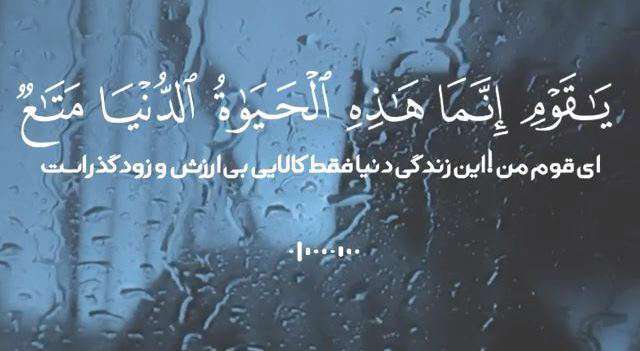 يَـٰقَوْمِ إِنَّمَا هَـٰذِهِ ٱلْحَيَوٰةُ ٱلدُّنْيَا مَتَـٰعٌ
ای قوم من! این زندگی دنیا فقط کالایی بی ارزش و زودگذر است